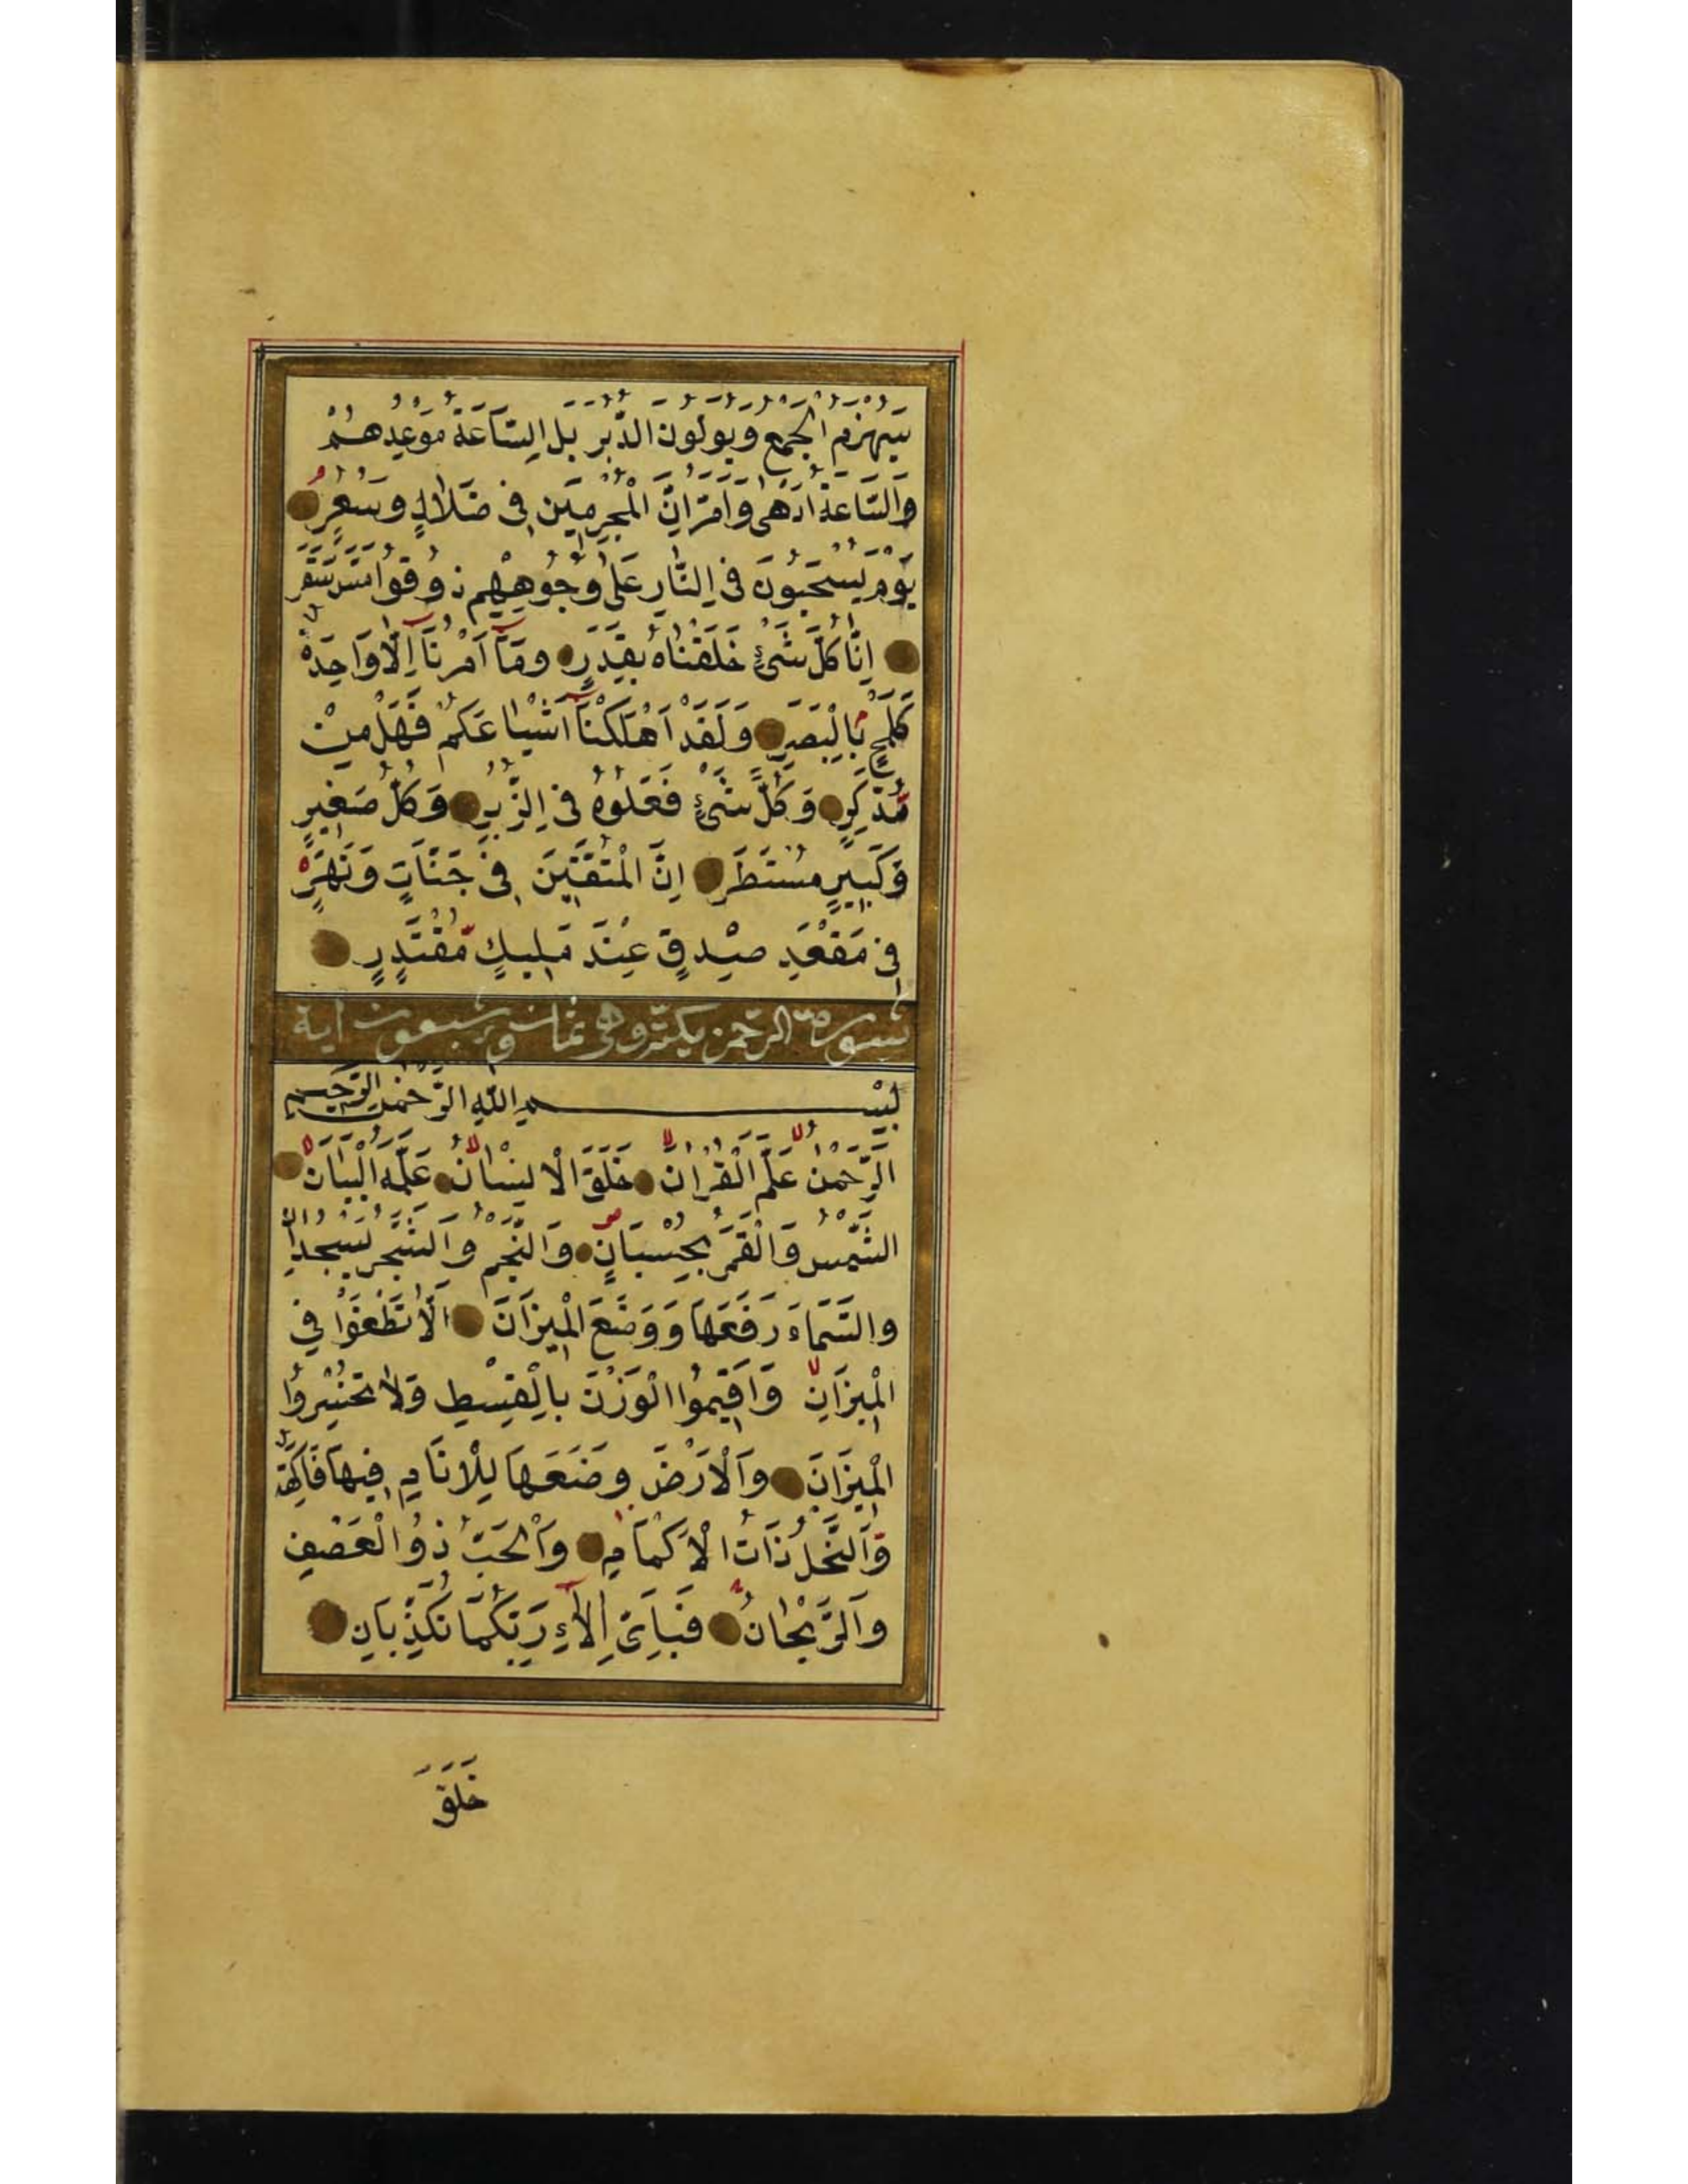 سَيُهْزَمُ الْجَمْعُ وَيُوَلُّونَ الدُّبُرَ بَلِ السَّاعَةُ مَوْعِدُهُمْ
وَالسَّاعَةُ اَدْهٰى وَاَمَرُّ اِنَّ الْمُجْرِمِينَ فِى ضَلَالٍ وَسُعُرٍ
يَوْمَ يُسْحَبُونَ فِى النَّارِ عَلٰى وُجُوهِهِمْ ذُوقُوا مَسَّ سَقَرَ
اِنَّا كُلَّ شَىْءٍ خَلَقْنَاهُ بِقَدَرٍ وَمَآ اَمْرُنَآ اِلَّا وَاحِدَةٌ
كَلَمْحٍ بِالْبَصَرِ وَلَقَدْ اَهْلَكْنَآ اَشْيَاعَكُمْ فَهَلْ مِنْ
مُدَّكِرٍ وَكُلُّ شَىْءٍ فَعَلُوهُ فِى الزُّبُرِ وَكُلُّ صَغِيرٍ
وَكَبِيرٍ مُسْتَطَرٌ اِنَّ الْمُتَّقِينَ فِى جَنَّاتٍ وَنَهَرٍ
فِى مَقْعَدِ صِدْقٍ عِنْدَ مَلِيكٍ مُقْتَدِرٍ
سورة الرحمن مكية وهى ثمان وسبعون اية
بِسْمِ اللّٰهِ الرَّحْمٰنِ الرَّحِيمِ
اَلرَّحْمٰنُ عَلَّمَ الْقُرْاٰنَ خَلَقَ الْاِنْسَانَ عَلَّمَهُ الْبَيَانَ
الشَّمْسُ وَالْقَمَرُ بِحُسْبَانٍ وَالنَّجْمُ وَالشَّجَرُ يَسْجُدَانِ
وَالسَّمَاءَ رَفَعَهَا وَوَضَعَ الْمِيزَانَ اَلَّا تَطْغَوْا فِى
الْمِيزَانِ وَاَقِيمُوا الْوَزْنَ بِالْقِسْطِ وَلَا تُخْسِرُوا
الْمِيزَانَ وَالْاَرْضَ وَضَعَهَا لِلْاَنَامِ فِيهَا فَاكِهَةٌ
وَالنَّخْلُ ذَاتُ الْاَكْمَامِ وَالْحَبُّ ذُو الْعَصْفِ
وَالرَّيْحَانُ فَبِاَىِّ اٰلَاءِ رَبِّكُمَا تُكَذِّبَانِ
خَلَقَ